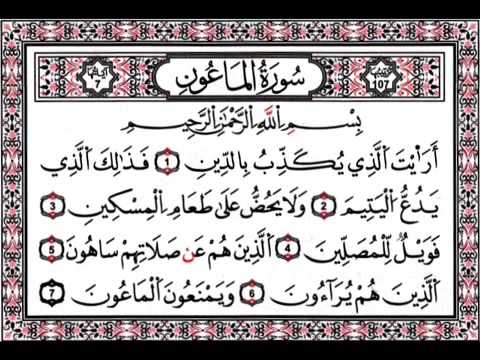 آياتها 7 سُورَةُ الْمَاعُونِ ترتيبها 107
بِسْمِ اللَّهِ الرَّحْمَٰنِ الرَّحِيمِ
أَرَأَيْتَ الَّذِي يُكَذِّبُ بِالدِّينِ 1 فَذَٰلِكَ الَّذِي
يَدُعُّ الْيَتِيمَ 2 وَلَا يَحُضُّ عَلَىٰ طَعَامِ الْمِسْكِينِ 3
فَوَيْلٌ لِّلْمُصَلِّينَ 4 الَّذِينَ هُمْ عَن صَلَاتِهِمْ سَاهُونَ 5
الَّذِينَ هُمْ يُرَآءُونَ 6 وَيَمْنَعُونَ الْمَاعُونَ 7